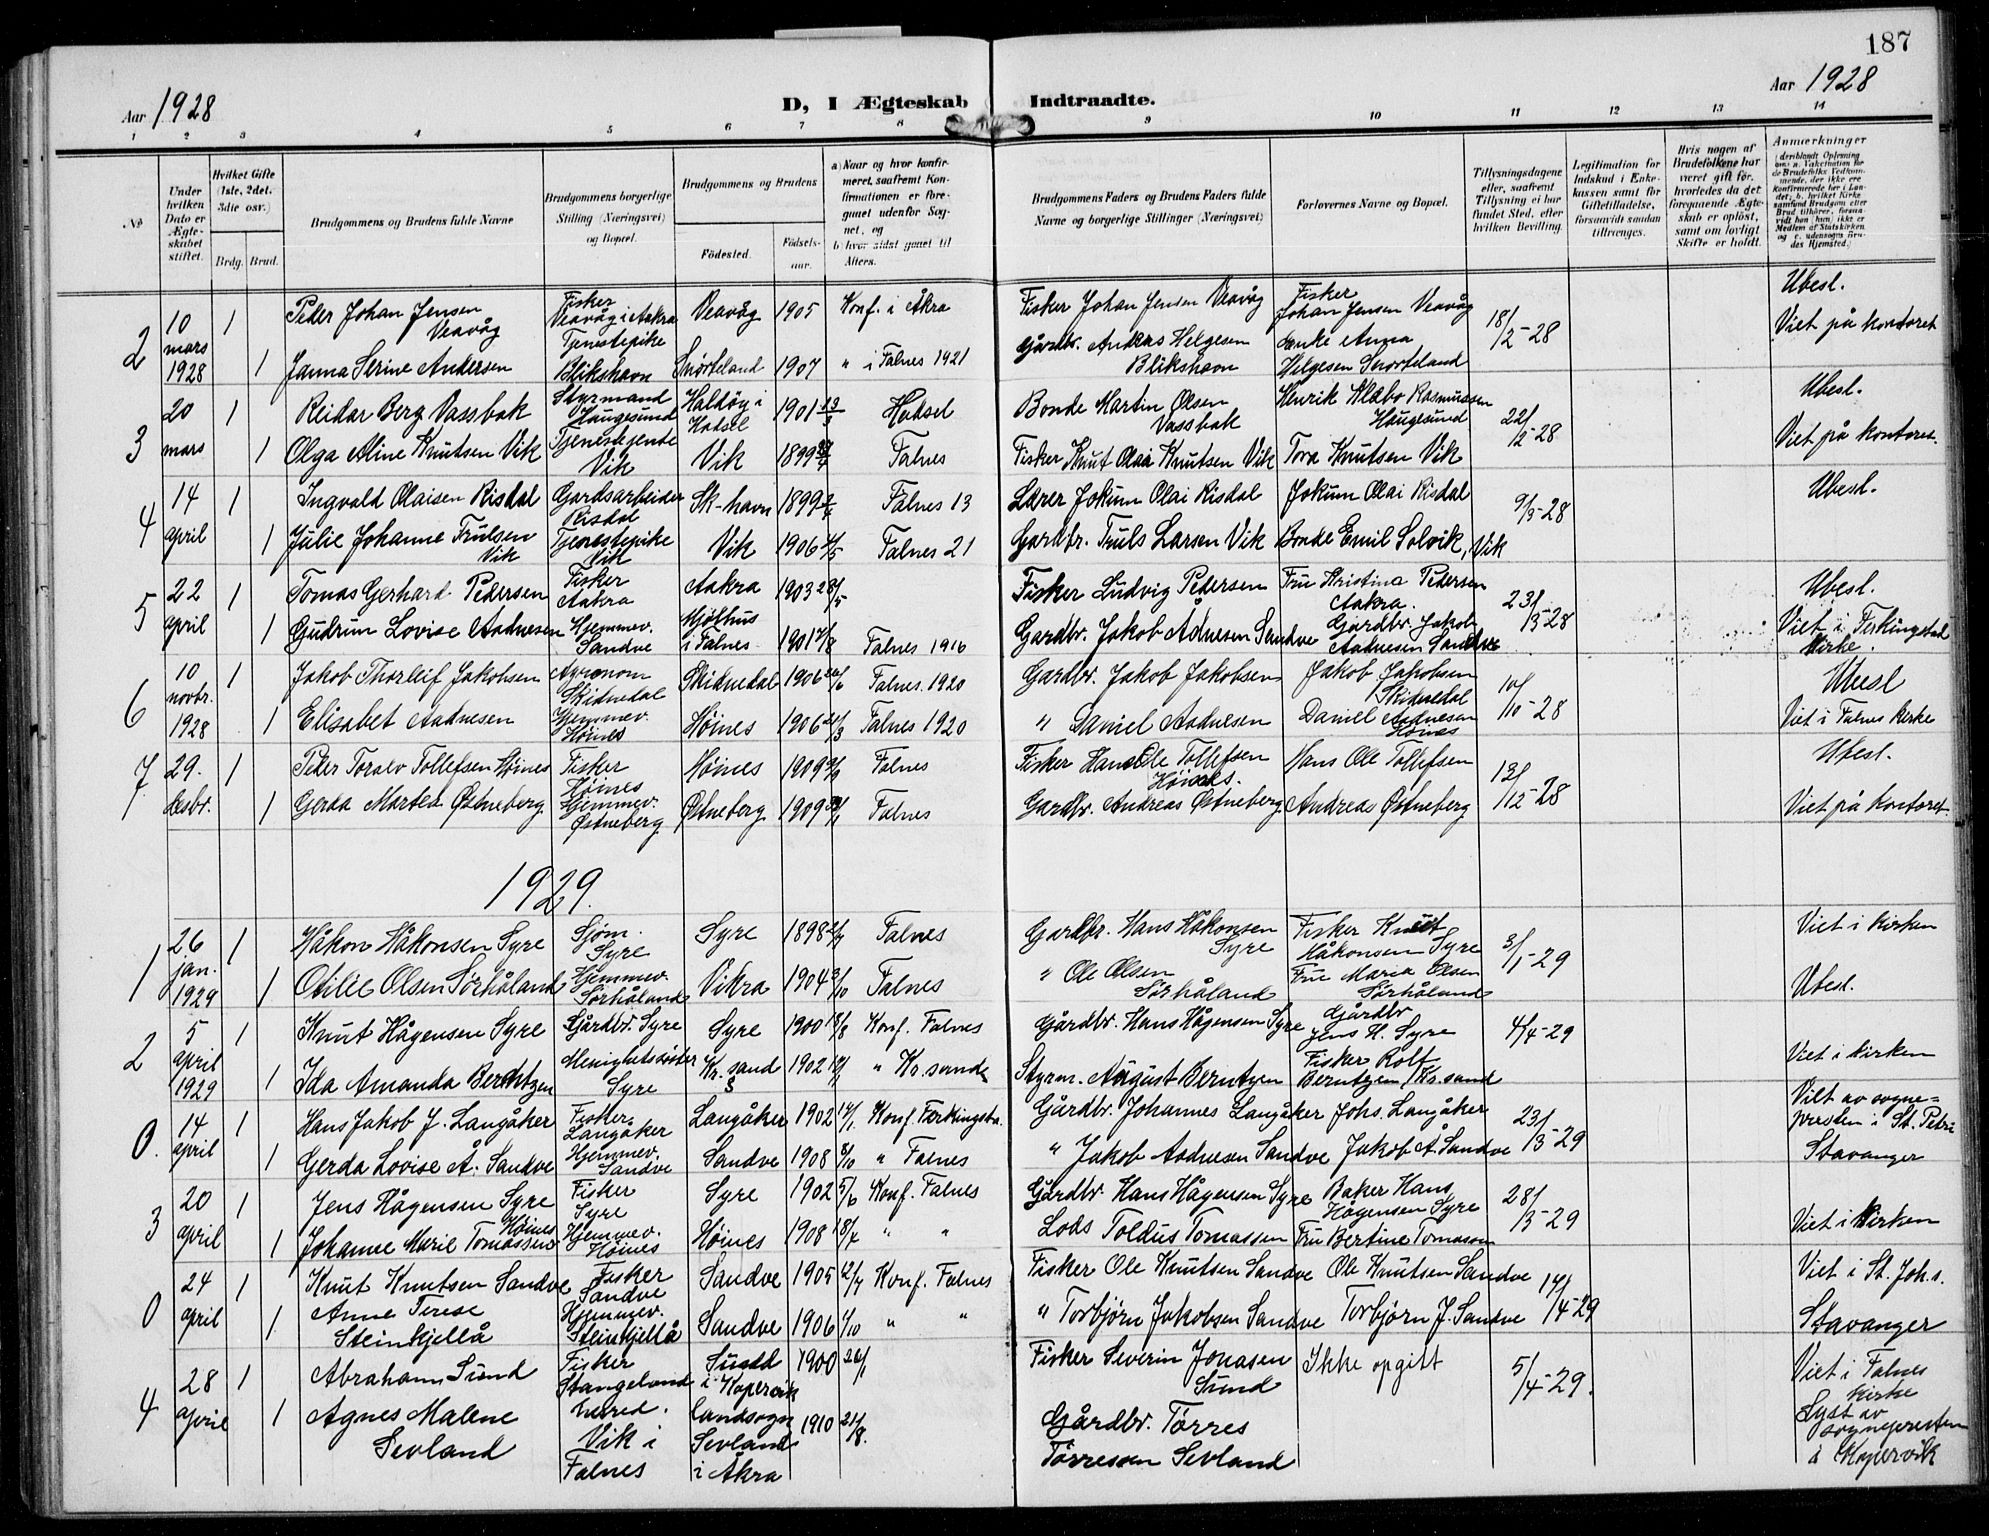 187
Aar 1928
D, I Ægteskab Indtraadte.
Aar 1928
1 2 3 4 5 6 7 8 9 10 11 12 13 14
No
Under hvilken Dato er Ægteskabet stiftet.
Hvilket Gifte (1ste, 2det, 3die osv.)
Brdg. Brud.
Brudgommens og Brudens fulde Navne
Brudgommens borgerlige Stilling (Næringsvei) og Bopæl.
Brudgommens og Brudens
Födested. Födselsaar.
a) Naar og hvor konfirmeret, saafremt Konfirmationen er foregaaet udenfor Sognet, og
b) hvor sidst gaaet til Alters.
Brudgommens Faders og Brudens Faders fulde Navne og borgerlige Stillinger (Næringsvei)
Forlovernes Navne og Bopæl.
Tillysningsdagene eller, saafremt Tillysning ei har fundet Sted, efter hvilken Bevilling.
Legitimation for Indskud i Enkekassen samt for Giftetilladelse, forsaavidt saadan tiltrænges.
Hvis nogen af Brudefolkene har været gift för, hvorledes da det foregaaende Ægteskab er oplöst, samt om lovligt Skifte er holdt.
Anmærkninger
2 10 mars 1928 1 Peder Johan Jensen Veavåg Fisker Veavåg i Aakra Veavåg 1905 Konf. i Åkra Fisker Johan Jensen Veavåg Fisker Johan Jensen Veavåg 18/2-28 Ubesl.
1 Janna Serine Andersen Tjenestepike Blikshavn Snørteland 1907 " i Falnes 1921 Gårdbr. Andreas Helgesen Blikshavn Enke Anna Helgesen Snørteland Viet på kontoret
3 20 mars 1 Reidar Berg Vassbak Styrmand Haugesund Haldöy i Hadsel 1901 Hadsel Bonde Martin Olsen Vassbak Henrik Klæbo Rasmussen Haugesund 22/2-28 Ubesl.
1 Olga Aline Knutsen Vik Tjenestejente Vik Vik 1899 Falnes Fisker Knut Olai Knutsen Vik Tora Knutsen Vik Viet på kontoret.
4 14 april 1 Ingvald Olaisen Risdal Gardsarbeider Risdal Sk-havn 1899 Falnes 13 Lærer Jokum Olai Risdal Jokum Olai Risdal 9/3-28 Ubesl.
1 Julie Johanne Trulsen Vik Tjenestepike Vik Vik 1906 Falnes 21 Gardbr. Truls Larsen Vik Bonde Emil Solvik, Vik
5 22 april 1 Tomas Gerhard Pedersen Fisker Aakra Aakra 1903 28/5 Fisker Ludvig Pedersen Fru Kristina Pedersen Aakra. 23/3-28 Ubesl.
1 Gudrun Lovise Aadnesen Hjemmev. Sandve Mjølhus i Falnes 1901 Falnes 1916 Gardbr. Jakob Adnesen Sandve Gardbr. Jakob Aadnesen Sandve Viet i Ferkingstad kirke.
6 10 novbr. 1928 1 Jakob Thorleif Jakobsen Agronom Skidnedal Skidnedal 1906 Falnes 1920 Gardbr. Jakob Jakobsen Jakob Jakobsen Skidnedal 10/10-28 Ubesl
1 Elisabet Aadnesen Hjemmev. Høines Høines 1906 Falnes 1920 " Daniel Aadnesen Daniel Aadnesen Hönes Viet i Falnes kirke
7 29. desbr. 1 Peder Toralv Tollefsen Høines Fisker Höines Høines 1909 Falnes Fisker Hans Ole Tollefsen Höines. Hans Ole Tollefsen 13/12-28 Ubesl.
1 Gerda Martea Østneberg Hjemmev. Østneberg Østneberg 1909 Falnes Gardbr. Andreas Østneberg Andreas Østneberg Viet på kontoret
1929.
1 26 jan. 1929 1 Håkon Håkonsen Syre Sjøm. Syre Syre 1898 Falnes Gardbr. Hans Håkonsen Syre Fisker Knut Håkonsen Syre 3/1-29 Viet i kirken
1 Otilie Olsen Sørhåland Hjemmev. Sørhåland Vikra 1904 3/10 Falnes " Ole Olsen Sørhåland Fru Maria Olsen Sørhåland Ubesl.
2 5 april 1929 1 Knut Hågensen Syre Gårdbr. Syre Syre 1900 Konf. Falnes Gårdbr. Hans Hågensen Syre Gårdbr. Jens H. Syre 4/4-29
1 Ida Amanda Berntzen Menighetssöster Syre Kr. sand S 1902 " Kr. sand Styrm. August Berntzen Fisker Rolf Berntzen, Kr. sand Viet i kirken
0. 14 april 1 Hans Jakob J. Langåker Fisker Langåker Langåker 1902 14/1. Konf. Ferkingsta. Gårdbr. Johannes Langåker Johs. Langåker 23/3-29 Viet av sogne=presten i St. Petri
1 Gerda Lovise A. Sandve Hjemmev. Sandve Sandve 1908 9/10 " Falnes " Jakob Aadnesen Sandve Jakob A. Sandve Stavanger
3 20 april 1 Jens Hågensen Syre Fisker Syre Syre 1902 5/6 Konf. Falnes Gårdbr. Hans Hågensen Syre Baker Hans Hågensen Syre 28/3-29
1 Johanne Marie Tomassen Høines Hjemmev. Höines Höines 1908 18/4 " " Lods Toldus Tomassen Fru Bertine Tomassen Viet i Kirken
0 24 april 1 Knut Knutsen Sandve Fisker Sandve Sandve 1905 12/7 Konf. Falnes Fisker Ole Knutsen Sandve Ole Knutsen Sandve 14/4-29 Viet i St. Joh.s.
1 Anne Terese Steinkjellå Hjemmev. Steinkjellå Sandve 1906 1/10 " " " Torbjörn Jakobsen Sandve Torbjørn J. Sandve Stavanger
4 28 april 1 Abraham Sund Fisker Stangeland herred. Sund i Kopervik landsogn 1900 26/1 Fisker Severin Jonasen Sund Ikke opgitt 5/4-29. Viet i Falnes kirke
1 Agnes Malene Sevland Vik i Falnes Sevland i Åkra 1910 21/8. Gårdbr. Tørres Tørressen Sevland Lyst av sognepresten i Kopervik